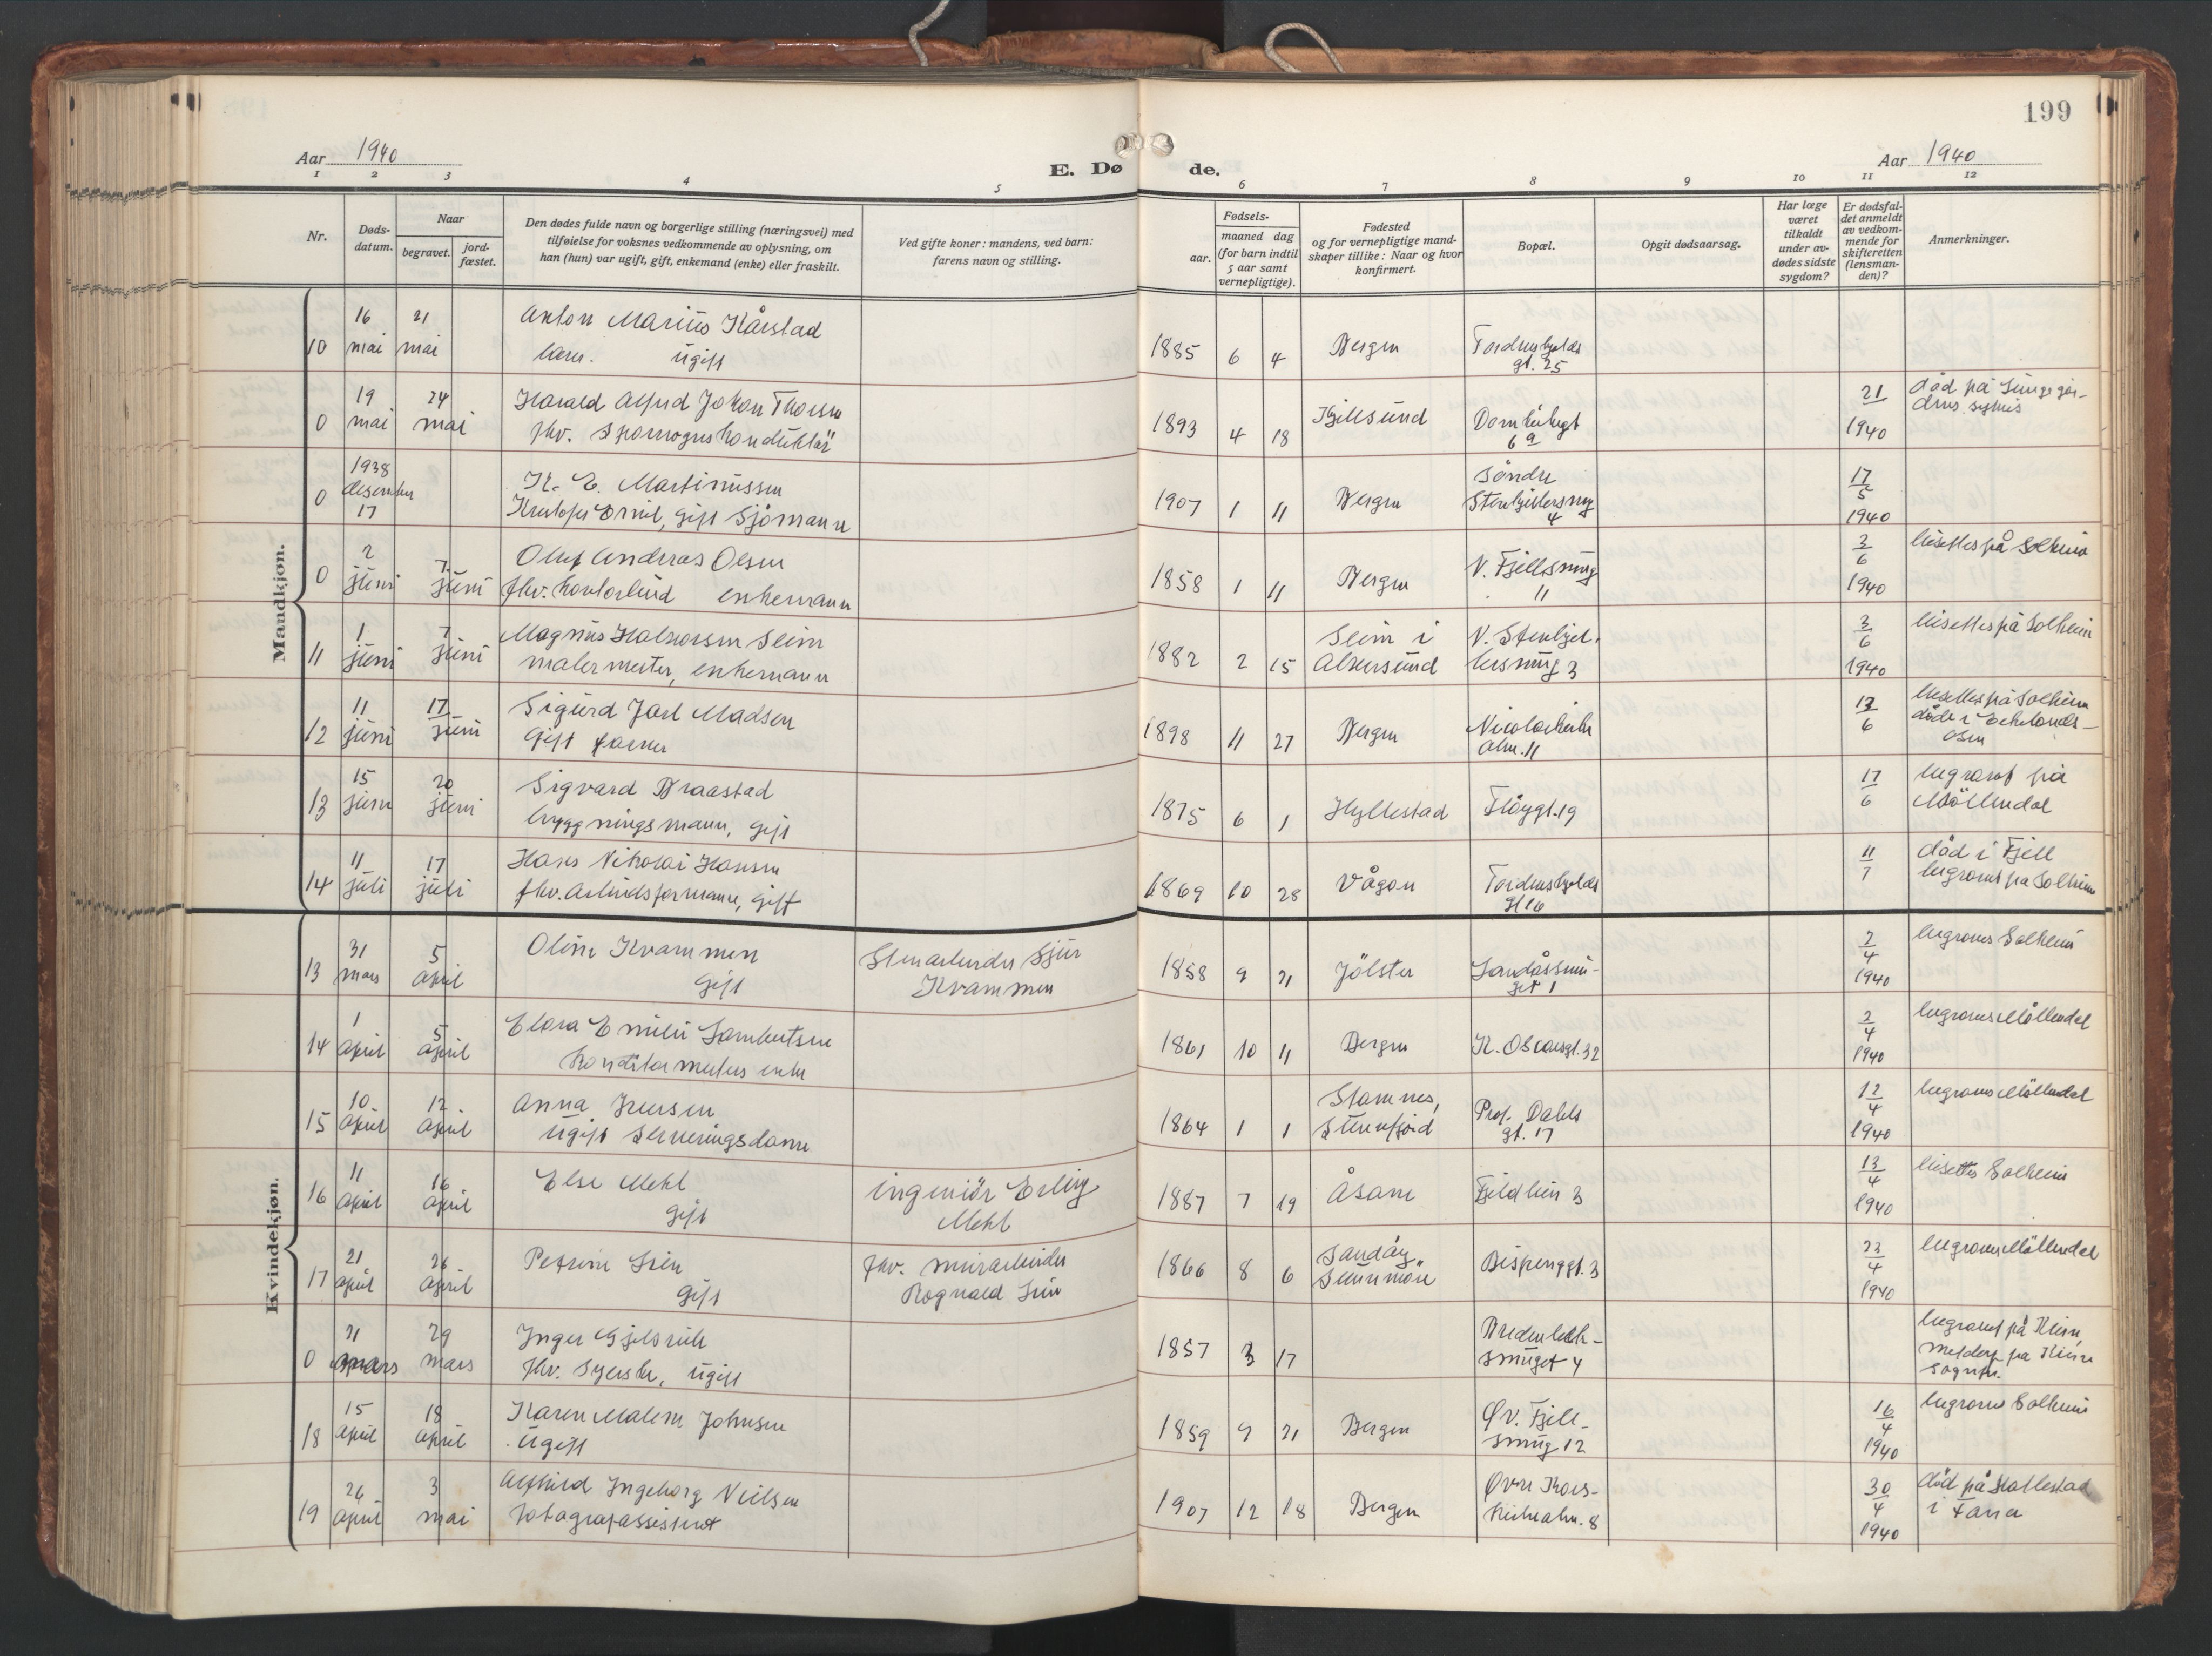 199
Aar 1940
E. Dø de.
Aar 1940
1 2 3 4 5 6 7 8 9 10 11 12
Nr.
Døds-
datum.
Naar
begravet.
jord-
fæstet.
Den dødes fulde navn og borgerlige stilling (næringsvei) med
tilføielse for voksnes vedkommende av oplysning, om
han (hun) var ugift, gift, enkemand (enke) eller fraskilt.
Ved gifte koner: mandens, ved barn:
farens navn og stilling.
Fødsels-
aar.
maaned dag
(for barn indtil
5 aar samt
vernepligtige).
Fødested
og for vernepligtige mand-
skaper tillike: Naar og hvor
konfirmert.
Bopæl.
Opgit dødsaarsag.
Har læge
været
tilkaldt
under av-
dødes sidste
sygdom?
Er dødsfal-
det anmeldt
av vedkom-
mende for
skifteretten
(lensman-
den)?
Anmerkninger.
Mandkjøn.
16 21 Anton Marius Kårstad
10 mai mai ugift 1885 6 4 Bergen Tordenskjolds
gt. 25
19 24 Harald Alfred Johan Thorsen 21 død på Lungegår-
0 mai mai fhv. Sporvognskonduktør 1893 4 18 1940 drens sykhus
6a
1938
desember
0 17 K. E. Martinussen 1907 1 11 Bergen Søndre 17/5
Kristofer Emil, gift Sjømann 4 1940
2 7 Oluf Andreas Olsen V. Fjellsmug bisettes på Solheim
0 juni juni fhv. kontorbud enkemann 1858 1 11 Bergen 11 1940
1 7 Magnus Halvorsen Seim Seim i V. Stenkjel- 3/6 bisettes på Solheim
11 juni juni malermester, enkemann 1882 2 15 Alversund lersmug 3 1940
11 17 Sigurd Jarl Madsen bisettes på Solheim
12 juni juni Gift 1898 11 27 Bergen Nicolaikirke
alm. 11 6
15 20 Sigvard Braastad 17/6 begravet på
13 juni juni bygningsmann, gift 1875 6 1 Hyllestad Fløygt. 19 Møllendal
11 17 Hans Nikolai Hansen 11/7 død i Fjell
14 juli juli fhv. Arbeidsformann, gift 1869 10 28 Vågan Tordenskjolds begravet på Solheim
gt 16
Kvindekjøn.
31 5 Oline Kvammen Stenarbeider Sjur 2/4 begraves Solheim
13 mars april gift Kvammen 1858 9 21 Jølster Landåssmu-
get 1 1940
1 5 Clara Emilie Lambertsen 2/4 begraves Møllendal
14 april april konditormesters enke 1861 10 11 Bergen K. Oscarsgt. 32 1940
10 12 Anna Iversen Stamnes, Prof. Dahls 12/4 begraves Møllendal
15 april april ugift Serveringsdame 1864 1 1 gt. 17 1940
11 16 Else Mehl ingeniør Erling 13/4 bisettes Solheim
16 april april gift Mehl 1887 7 19 Åsane Fjeldlien 3 1940
21 26 Petrine fhv. murarbeider Sandøy, 23/4 begraves Møllendal
17 april april gift Rognald 1866 8 6 Sunnmøre Bispenggt. 3 1940
21 29 Inger
0 mars mars fhv. Syerske, ugift 1857 3 17 smuget 4 begravet på
15 18 Karen Malene Johnsen Øv. Fjell- 16/4 begraves Solheim
18 april april ugift 1859 9 21 Bergen smug 12 1940
26 3 Alfhild Ingeborg Nielsen Øvre Kors- 30/4 død på
19 april mai fotografassistent 1907 12 18 Bergen kirkealm. 8 1940 i Fana